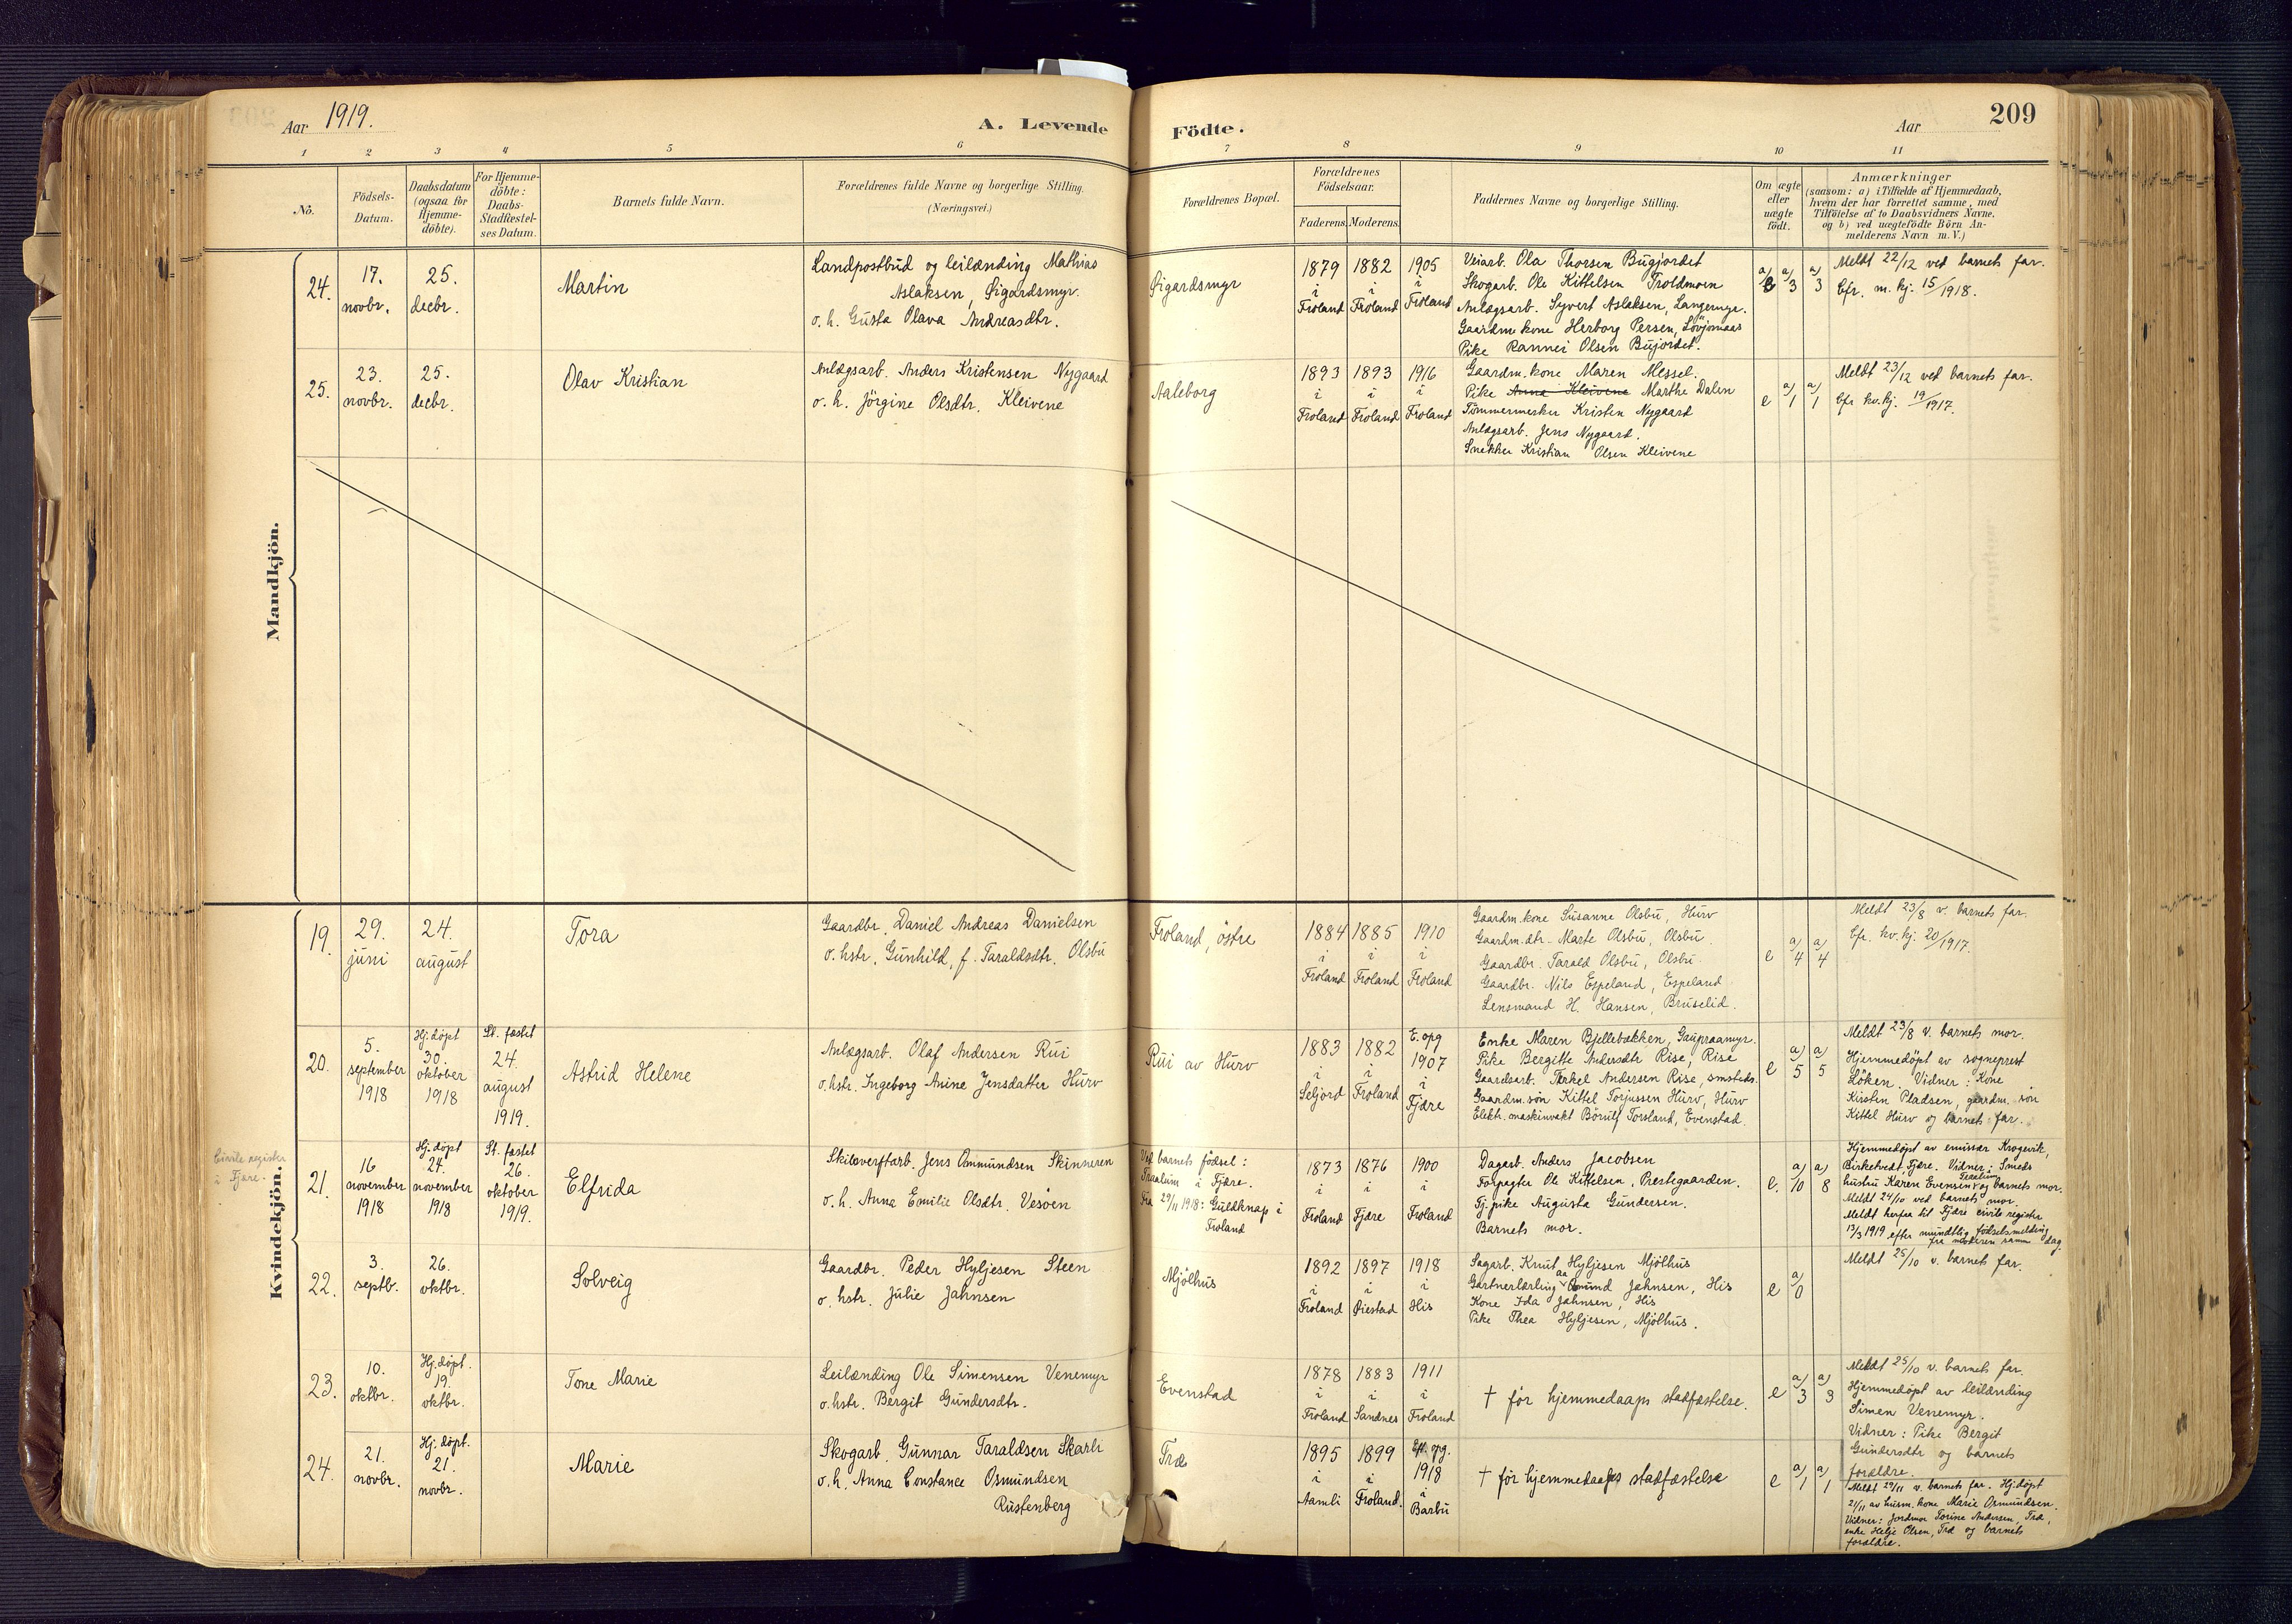 Aar 1919.
A. Levende
Födte.
Aar
209
1 2 3 4 5 6 7 8 9 10 11
No.
Födsels-
Datum.
Daabsdatum
(ogsaa for
Hjemme-
döbte).
For Hjemme-
döbte:
Daabs-
Stadfæstel-
ses Datum.
Barnets fulde Navn.
Forældrenes fulde Navne og borgerlige Stilling.
(Næringsvei.)
Forældrenes Bopæl.
Forældrenes
Födselsaar.
Faderens. Moderens.
Faddernes Navne og borgerlige Stilling.
Om ægte
eller
uægte
födt.
Anmærkninger
(saasom: a) i Tilfælde af Hjemmedaab,
hvem der har forrettet samme, med
Tilföielse af to Daabsvidners Navne.
og b) ved uægtefödte Börn An-
melderens Navn m. V.)
Mandkjön.
24.
17.
novbr.
25.
decbr.
Martin
Landpostbud og leilænding Mathias
Aslaksen, Sigardsmyr.
o. h. Gusta Olava Andreasdtr.
Sigardsmyr
1879 1882 1905
i i i
Froland Froland Froland
Veiarb. Ola Thorsen Bugjordet
Skogarb. Ole Kittelsen Troldmoen
Anlægsarb. Syvert Aslaksen, Langemyr.
Gaardm. kone Herborg Persen, Lövjomaas
Pike Rannei Olsen Bujordet.
e a/3 a/3
Meldt 22/12 ved barnets far.
Cfr. m. kj. 15/1918.
25.
23.
novbr.
25.
decbr.
Olav Kristian
Anlægsarb. Anders Kristensen Nygaard
o. h. Jörgine Olsdtr. Kleivene
Aaleborg
1893 1893 1916
i i i
Froland Froland Froland
Gaardm. kone Maren Messel.
Pike Anna Kleivene Marthe Dalen
Tömmermerker Kristen Nygaard
Anlægsarb. Jens Nygaard.
Snekker Kristian Olsen Kleivene
e a/1 a/1
Meldt 23/12 ved barnets far.
Cfr kv. kj. 19/1917.
Kvindekjön.
19.
29.
juni
24.
august
Tora
Gaardbr. Daniel Andreas Danielsen
o. hstr. Gunhild, f. Taraldsdtr. Olsbu
Froland, östre
1884 1885 1910
i i i
Froland Froland Froland
Gaardm. kone Susanne Olsbu, Hurv
Gaardm. dtr. Marte Olsbu, Olsbu.
Gaardbr. Tarald Olsbu, Olsbu
Gaardbr. Nils Espeland, Espeland
Lensmand H. Hansen, Bruselid.
e a/4 a/4
Meldt 23/8 v. barnets far.
Cfr. kv. kj. 20/1917.
20.
5.
september
1918
Hj. döpt
30.
oktober
1918
St. fæstet
24.
august
1919.
Astrid Helene
Anlægsarb. Olaf Andersen Rui
o. hstr. Ingeborg Anine Jensdatter Hurv
Rui av Hurv
1883 1882 E. opg 1907
i i i
Seljord Froland Fjære
Enke Maren Bjellebækken, Grupraamyr.
Pike Bergitte Andersdtr Rise, Rise
Gaardsarb. Terkel Andersen Rise, smsteds.
Gaardm. sön Kittel Torjussen Hurv, Hurv
Elektr. maskinvakt Börulf Torsland, Evenstad.
e a/5 a/5
Meldt 23/8 v. barnets mor.
Hjemmedöpt av sogneprest
Löken. Vidner: Kone
Kirsten Pladsen, gaardm. sön
Kittel Hurv og barnets far.
Civile register
i Fjære.
21.
16
november
1918
Hj. döpt
24.
november
1918
St. fæstet
26.
oktober
1919.
Elfrida
Skibsverftarb. Jens Ommundsen Skinneren
o. h. Anna Emilie Olsdtr. Vesöen
Ved barnets födsel:
Traalum i Fjære.
Fra 29/11 1918: Guldknap i
Froland
1873 1876 1900
i i i
Froland Fjære Froland
Dagarb. Anders Jacobsen
Forpagter Ole Kittelsen, Prestegaarden.
Tj. pike Augusta Gundersen.
Barnets mor.
e. a/10 a/8
Hjemmedöpt av emissær Krogevik,
Birketvedt, Fjære. Vidner: Smeds
hustru Karen Evensen og barnets mor.
Meldt 24/10 ved barnets mor
Meldt herfra til Fjære civile register
13/3 1919 efter mundtlig födselsmelding
fra moderen samme dag.
22.
3.
septb.
26.
oktbr.
Solveig
Gaardbr. Peder Hyljesen Steen
o. hstr. Julie Jahnsen
Mjölhus
1892 1897 1918
i i i
Froland Öiestad His
Sagarb. Knut Hyljesen Mjölhus
Gartnerlærling Aamund Jahnsen, His
Kone Ida Jahnsen, His
Pike Thea Hyljesen, Mjölhus.
e a/0
Meldt 25/10 v. barnets far.
23.
10.
oktbr.
Hj. döpt.
19.
oktbr.
Tone Marie
Leilænding Ole Simensen Venemyr
o. hstr. Bergit Gundersdtr.
Evenstad
1878 1883 1911
i i i
Froland Sandnes Froland
† för hjemmedaaps stadfæstelse.
e a/3 a/3
Meldt 25/10 v. barnets far.
Hjemmedöpt av leilænding
Simen Venemyr.
Vidner: Pike Bergit
Gundersdtr og barnets
forældre.
24.
21.
novbr.
Hj. döpt.
21.
novbr.
Marie
Skogarb. Gunnar Taraldsen Skarli
o. h. Anna Constance Osmundsen
Rustenberg
Træ
1895 1899 Eft. opg. 1918
i i i
Aamli Froland. Barbu
† för hjemmedaaps stadfæstelse
e a/1 a/1
Meldt 29/11 v. barnets far. Hj. döpt
21/11 av husm. kone Marie Osmundsen.
Vidner: Jordmor Torine Andersen, Træ,
enke Helje Olsen, Træ og barnets
forældre.